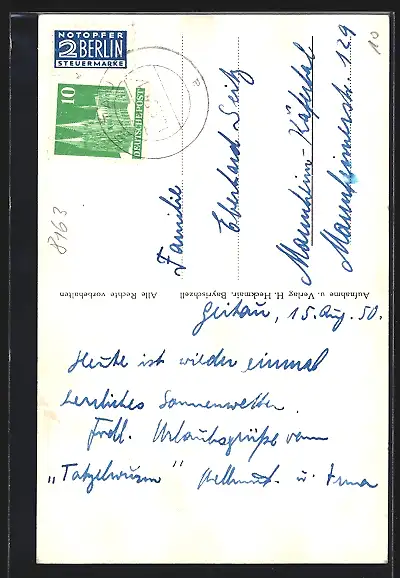 NOTOPFER
2 BERLIN
STEUERMARKE
10
DEUTSCHE POST
8163
10
Familie
Eberhard Seitz
Mannheim-Käfertal
Mannheimerstr. 129
Aufnahme u. Verlag H. Heckmair, Bayrischzell
Alle Rechte vorbehalten
Geitau, 15. Aug. 50.
Heute ist wieder einmal
herrliches Sonnenwetter.
Frdl. Urlaubsgrüße vom
„Tatzelwurm" Hellmut u. Irma